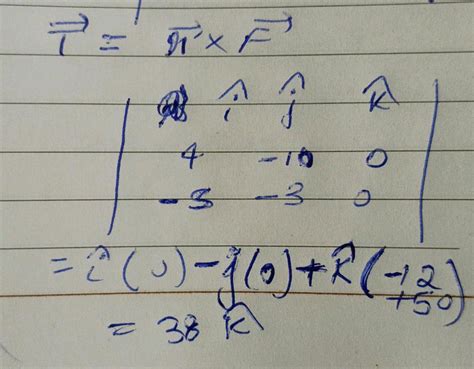 τ⃗ = r⃗ × F⃗
î ĵ k̂
4 -10 0
-5 -3 0
= î (0) - ĵ (0) + k̂ (-12 + 50)
= 38 k̂